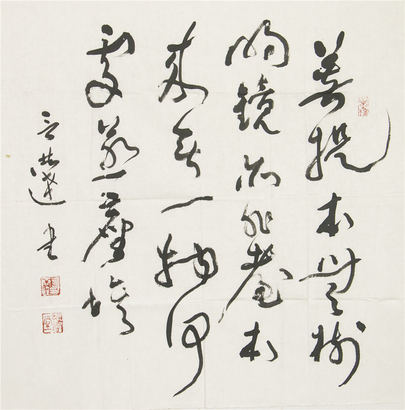 菩提本無樹
明鏡亦非臺本
來無一物何
處惹塵埃
言恭達書